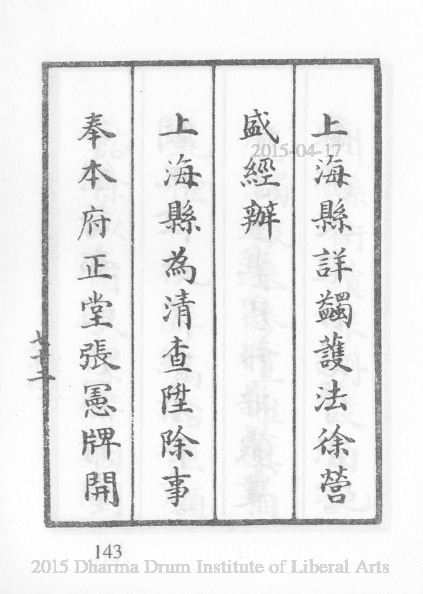 上海縣詳蠲護法徐營
盛經辦
上海縣為清查陞除事
奉本府正堂張憲牌開
七十二
143
2015-04-17
2015 Dharma Drum Institute of Liberal Arts